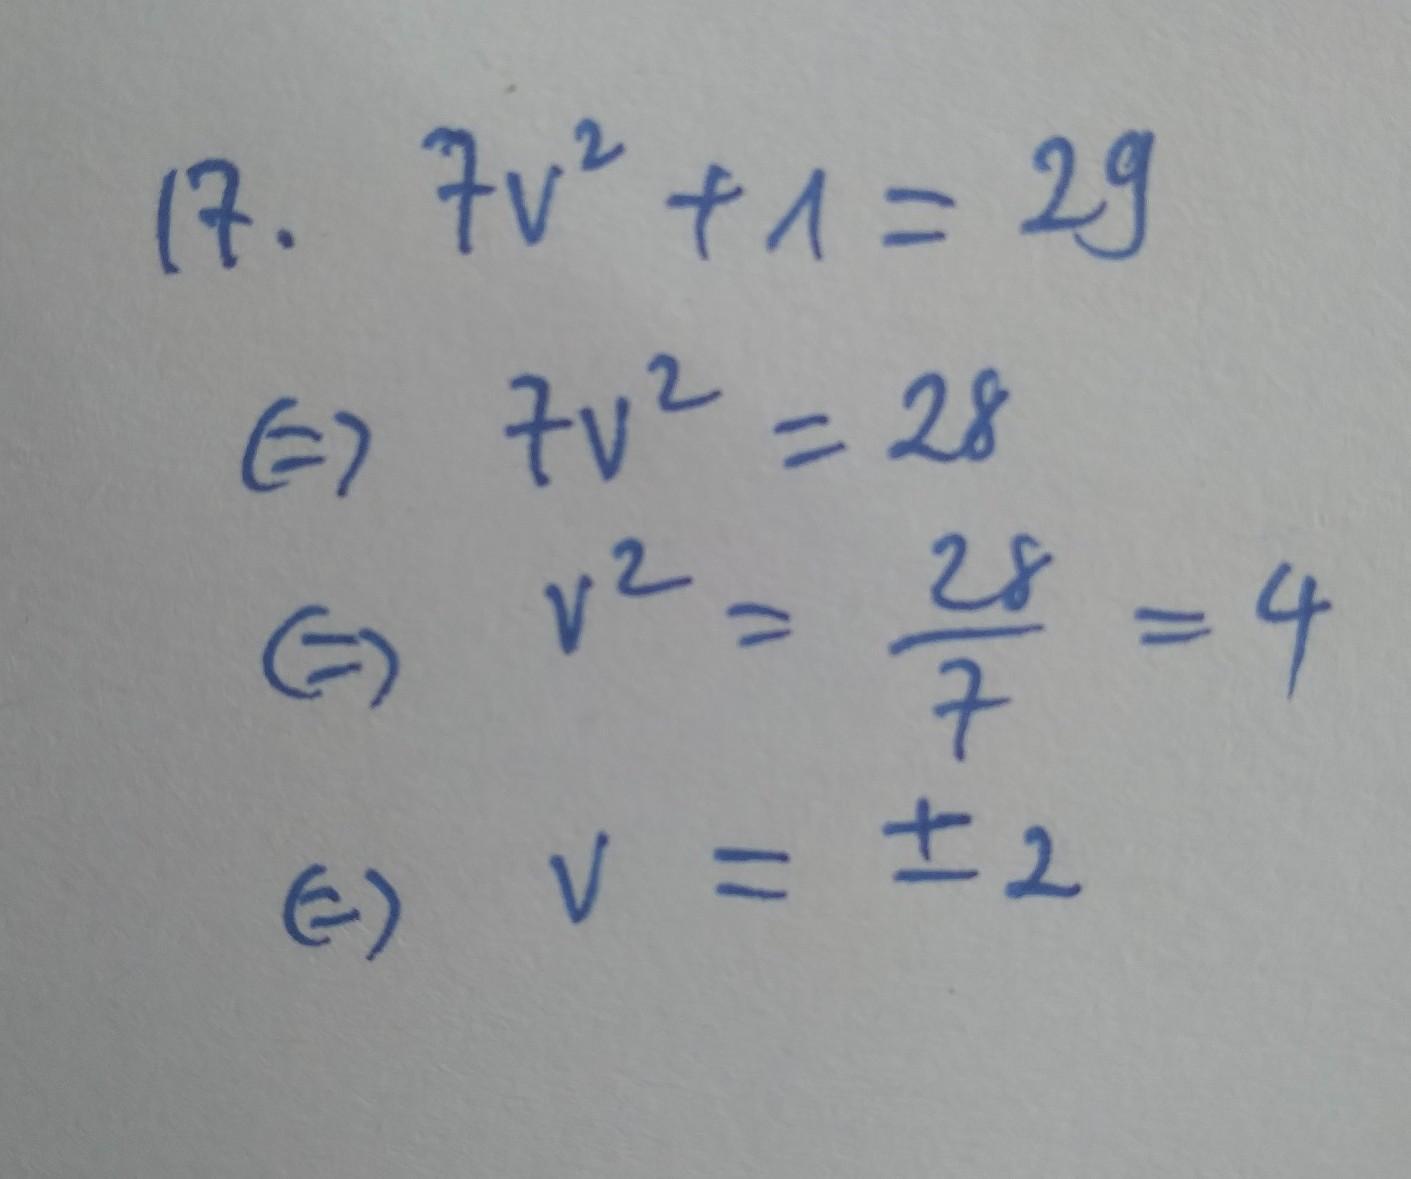 17. 7v² + 1 = 29
(=) 7v² = 28
(=) v² = 28/7 = 4
(=) v = ± 2